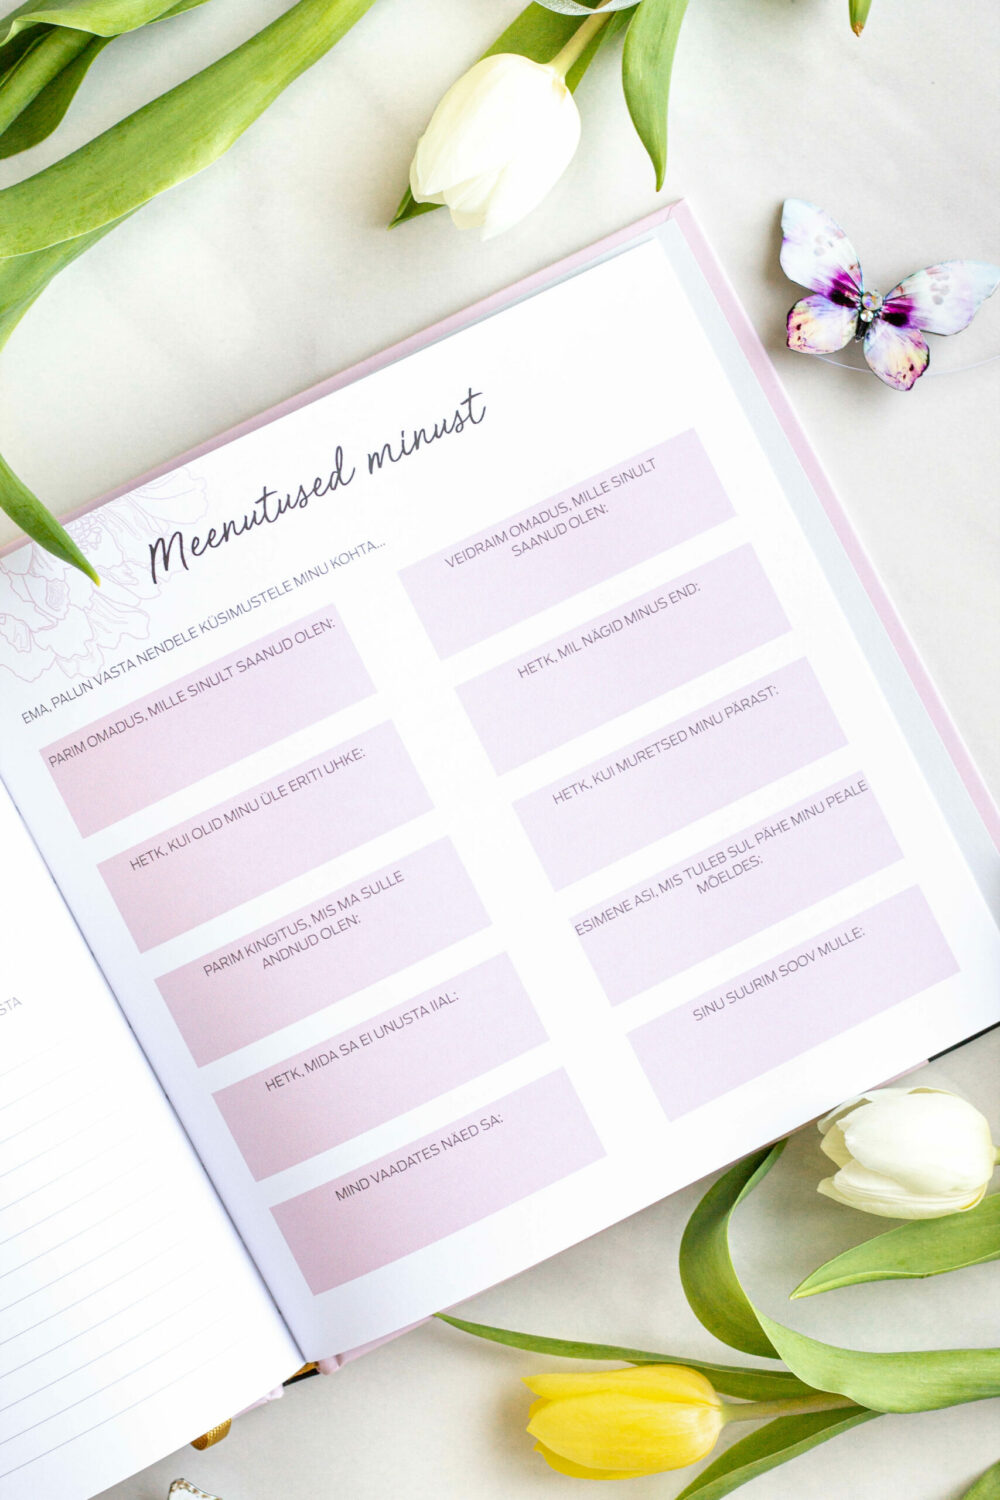 Meenutused minust
EMA, PALUN VASTA NENDELE KÜSIMUSTELE MINU KOHTA...
PARIM OMADUS, MILLE SINULT SAANUD OLEN:
HETK, KUI OLID MINU ÜLE ERITI UHKE:
PARIM KINGITUS, MIS MA SULLE
ANDNUD OLEN:
HETK, MIDA SA EI UNUSTA IIAL:
MIND VAADATES NÄED SA:
VEIDRAIM OMADUS, MILLE SINULT
SAANUD OLEN:
HETK, MIL NÄGID MINUS END:
HETK, KUI MURETSED MINU PÄRAST:
ESIMENE ASI, MIS TULEB SUL PÄHE MINU PEALE
MÕELDES:
SINU SUURIM SOOV MULLE: